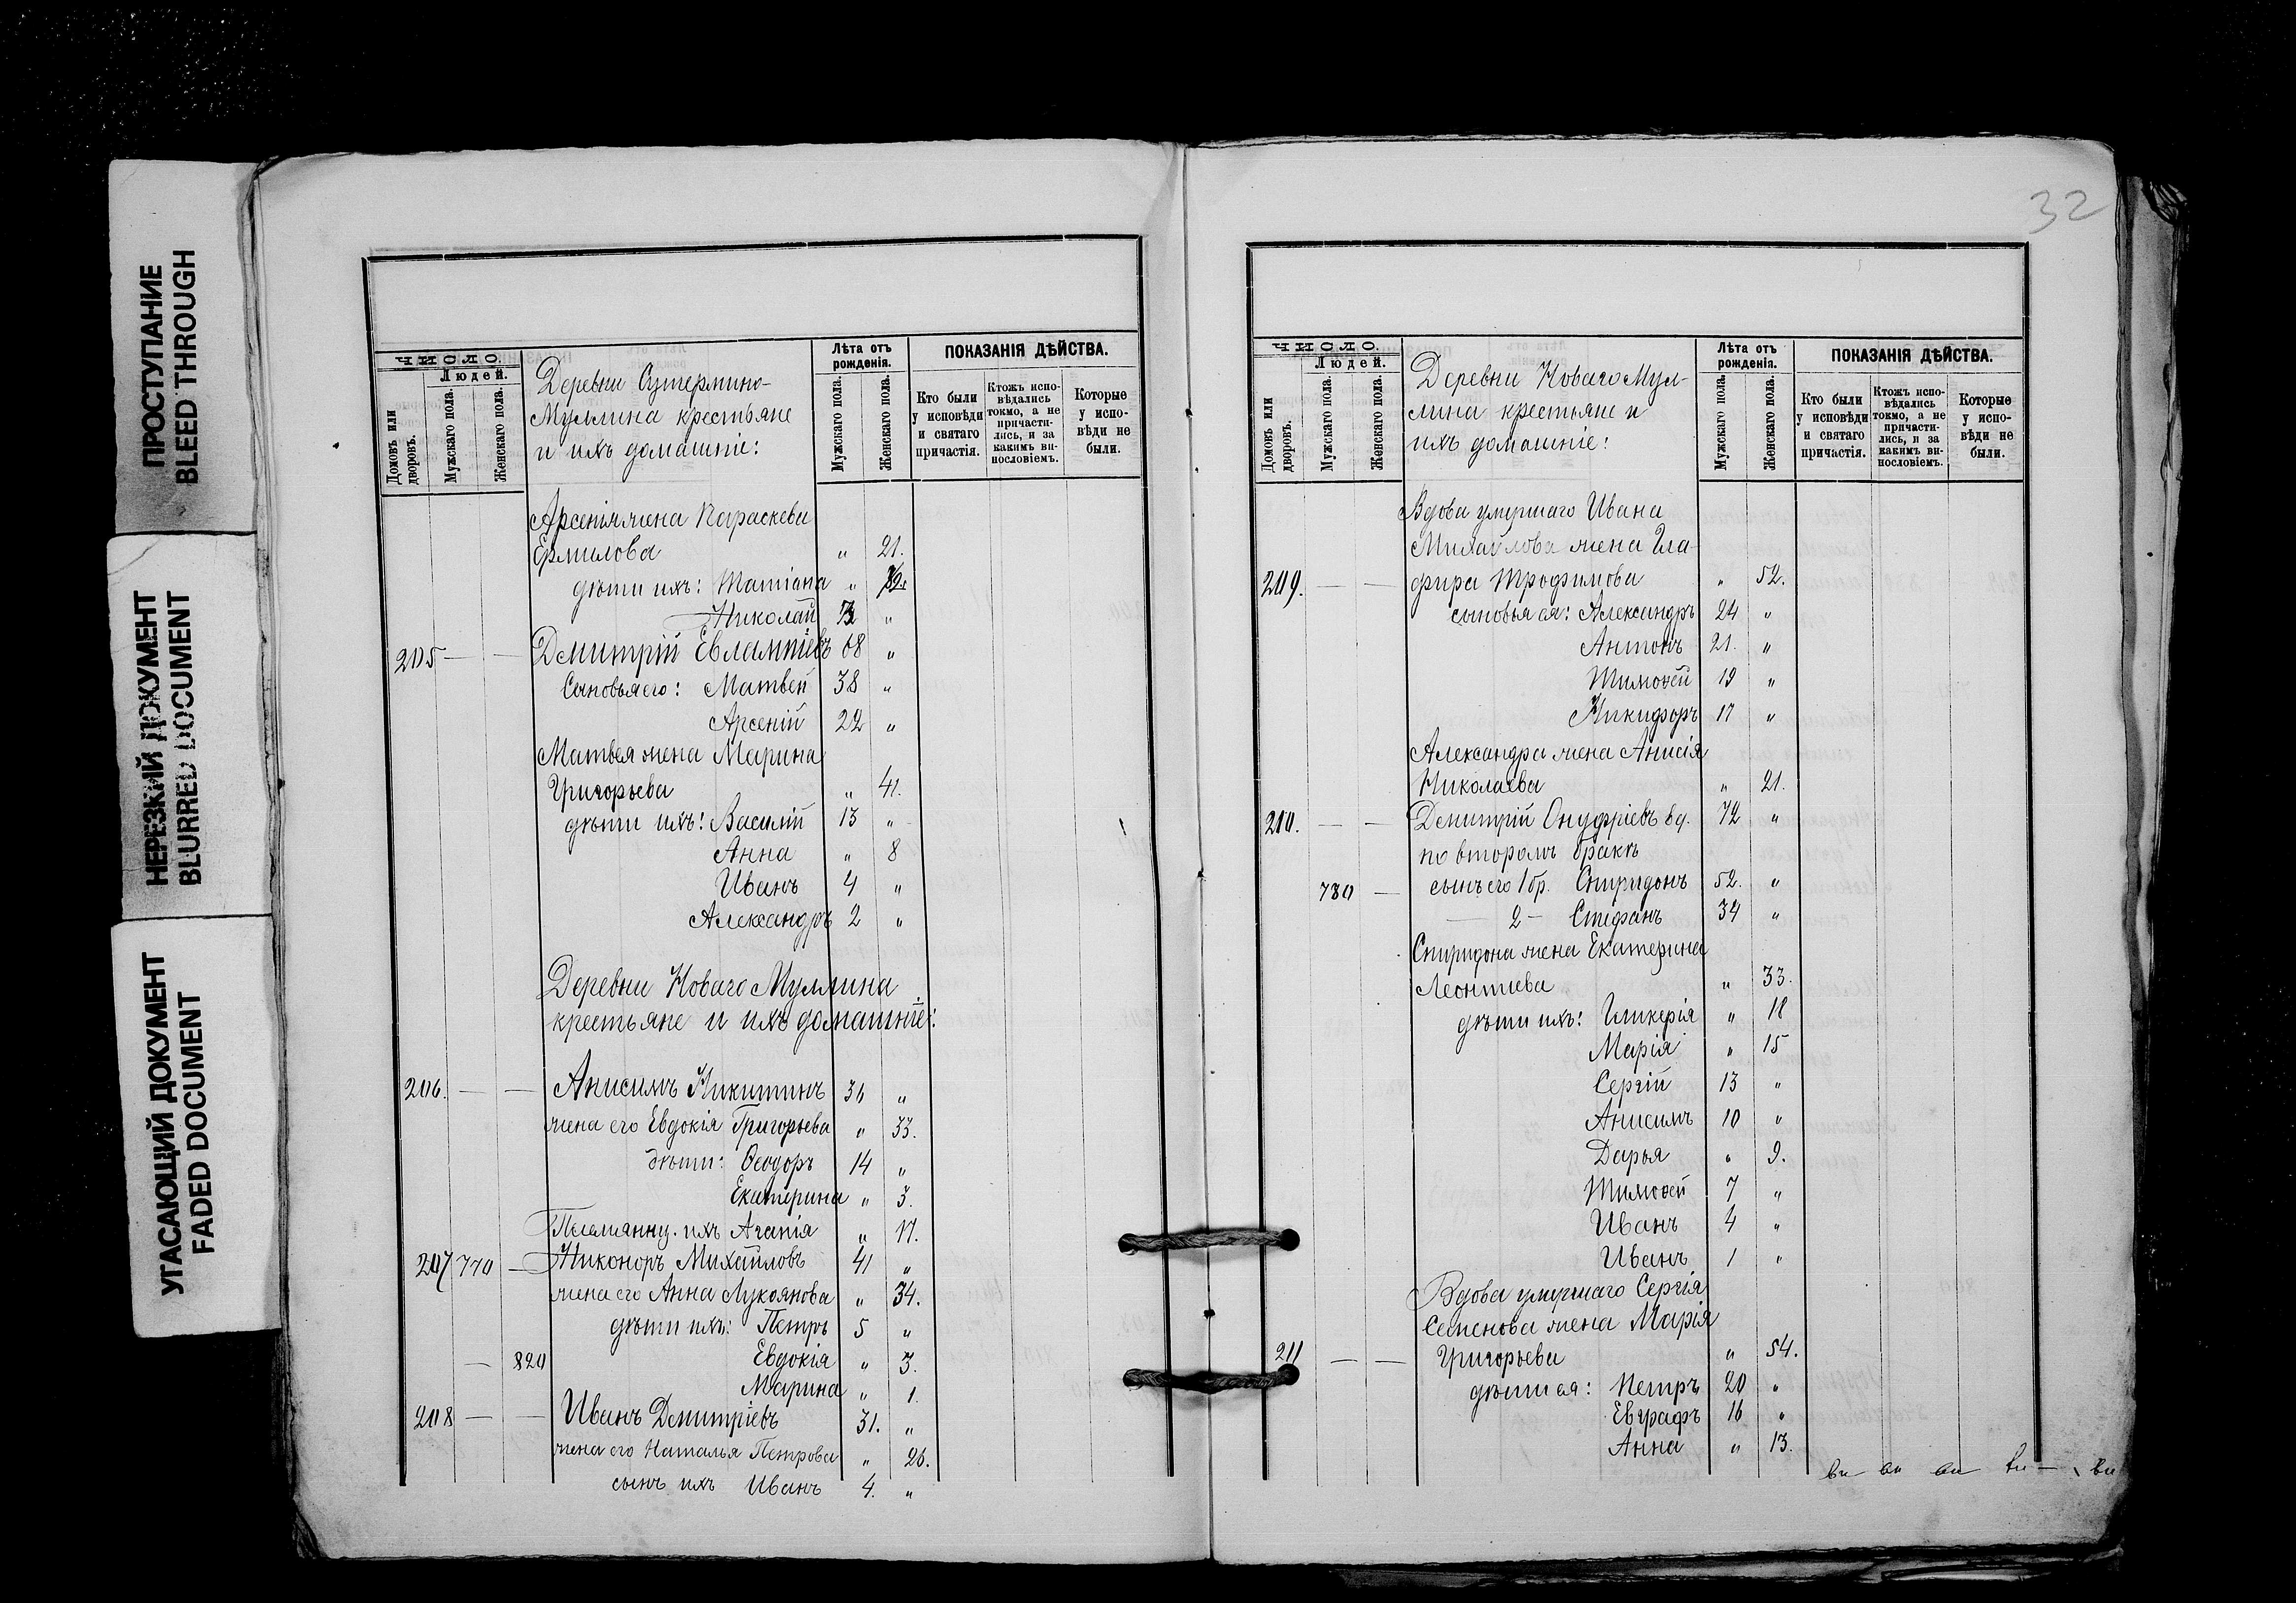 ПРОСТУПАНИЕ
BLEED THROUGH
НЕРЕЗКИЙ ДОКУМЕНТ
BLURRED DOCUMENT
УГАСАЮЩИЙ ДОКУМЕНТ
FADED DOCUMENT
ЧИСЛО.
Людей.
Домовъ или дворовъ.
Мужскаго пола.
Женскаго пола.
Деревни Сутермино-
Муллина крестьяне
и ихъ домашніе:
Лѣта отъ рожденія.
Мужскаго пола.
Женскаго пола.
ПОКАЗАНІЯ ДѢЙСТВА.
Кто были у исповѣди и святаго причастія.
Ктожъ исповѣдались токмо, а не причастились, и за какимъ винословіемъ.
Которые у исповѣди не были.
Арсенія жена Параскева
Ермилова " 21.
дѣти ихъ: Татіана "
Николай "
205 — — Дмитрій Евлампіевъ 68 "
Сыновья его: Матвей 38 "
Арсеній 22 "
Матвея жена Марина
Григорьева " 41.
дѣти ихъ: Василій 13 "
Анна " 8
Иванъ 4 "
Александръ 2 "
Деревни Новаго Муллина
крестьяне и ихъ домашніе:
206. — — Анисимъ Никитинъ 36 "
жена его Евдокія Григорьева " 33.
дѣти: Ѳеодоръ 14 "
Екатерина " 3.
Племянниц. ихъ Агапія " 17.
207 770 — Никоноръ Михайловъ 41 "
жена его Анна Лукоянова " 34.
дѣти ихъ: Петръ 5 "
— 820 Евдокія " 3.
Марина " 1.
208 — — Иванъ Дмитріевъ 31. "
жена его Наталья Петрова " 26.
сынъ ихъ Иванъ 4. "
32
ЧИСЛО.
Людей.
Домовъ или дворовъ.
Мужскаго пола.
Женскаго пола.
Деревни Новаго Мул-
лина крестьяне и
ихъ домашніе:
Лѣта отъ рожденія.
Мужскаго пола.
Женскаго пола.
ПОКАЗАНІЯ ДѢЙСТВА.
Кто были у исповѣди и святаго причастія.
Ктожъ исповѣдались токмо, а не причастились, и за какимъ винословіемъ.
Которые у исповѣди не были.
Вдова умершаго Ивана
Михайлова жена Гла-
209. — — фира Трофимова " 52.
сыновья ея: Александръ 24 "
Антонъ 21. "
Тимоѳей 19 "
Никифоръ 17 "
Александра жена Анисія
Николаева " 21.
210. — — Дмитрій Онуфріевъ вд. 72 "
по второмъ бракѣ
780 — сынъ его 1 бр. Спиридонъ 52. "
— 2 — Стефанъ 34 "
Спиридона жена Екатерина
Леонтиева " 33.
дѣти ихъ: Гликерія " 18
Марія " 15
Сергій 13 "
Анисимъ 10 "
Дарья " 9.
Тимоѳей 7 "
Иванъ 4 "
Иванъ 1 "
Вдова умершаго Сергія
Семенова жена Марія
211 — — Григорьева " 54.
дѣти ея: Петръ 20 "
Евграфъ 16 "
Анна " 13.